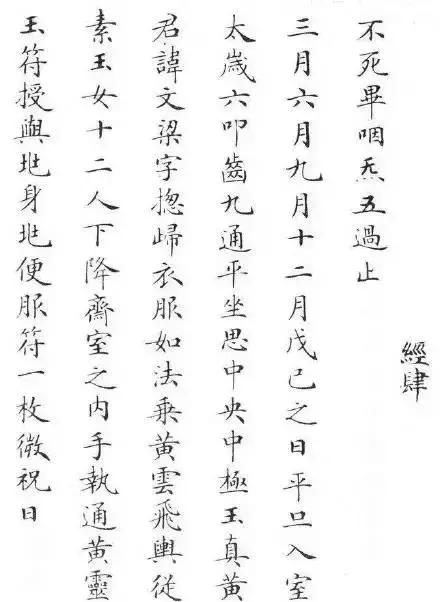 經肆
不死畢咽炁五過止
三月六月九月十二月戊己之日平旦入室
太歲六叩齒九通平坐思中央中極玉真黃
君諱文梁字揔歸衣服如法乘黃雲飛輿從
素玉女十二人下降齋室之內手執通黃靈
玉符授與兆身兆便服符一枚微祝曰